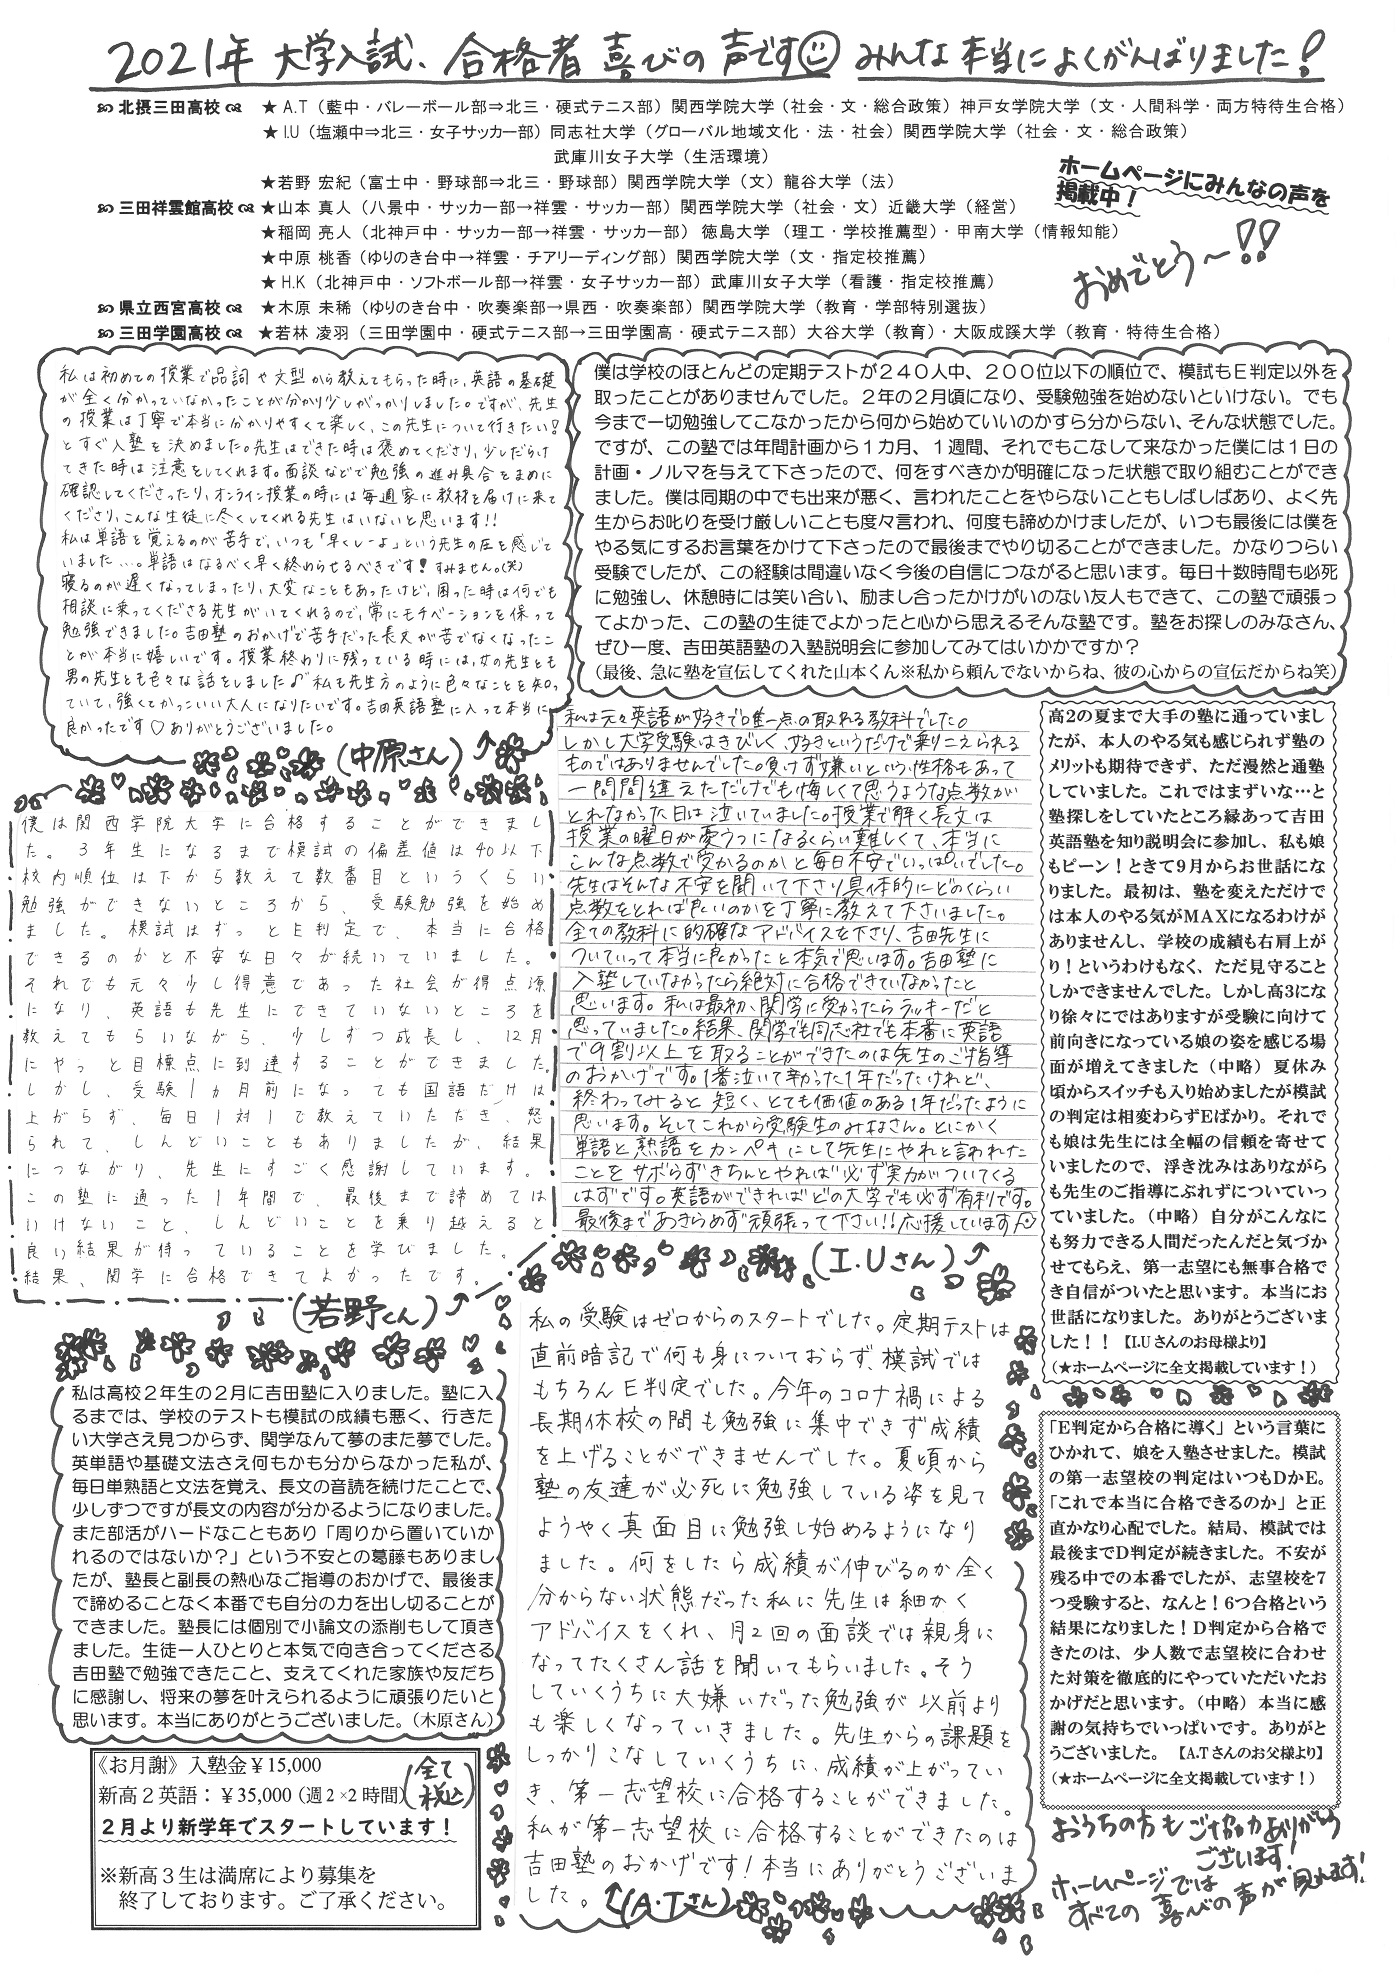 2021年 大学入試、合格者 喜びの声です みんな本当によくがんばりました!
北摂三田高校 ★ A.T（藍中・バレーボール部⇒北三・硬式テニス部）関西学院大学（社会・文・総合政策）神戸女学院大学（文・人間科学・両方特待生合格）
★ I.U（塩瀬中⇒北三・女子サッカー部）同志社大学（グローバル地域文化・法・社会）関西学院大学（社会・文・総合政策）
武庫川女子大学（生活環境）
★若野 宏紀（富士中・野球部⇒北三・野球部）関西学院大学（文）龍谷大学（法）
三田祥雲館高校 ★山本 真人（八景中・サッカー部→祥雲・サッカー部）関西学院大学（社会・文）近畿大学（経営）
★稲岡 亮人（北神戸中・サッカー部→祥雲・サッカー部） 徳島大学 （理工・学校推薦型）・甲南大学（情報知能）
★中原 桃香（ゆりのき台中→祥雲・チアリーディング部）関西学院大学（文・指定校推薦）
★ H.K（北神戸中・ソフトボール部→祥雲・女子サッカー部）武庫川女子大学（看護・指定校推薦）
県立西宮高校 ★木原 未稀（ゆりのき台中・吹奏楽部→県西・吹奏楽部）関西学院大学（教育・学部特別選抜）
三田学園高校 ★若林 凌羽（三田学園中・硬式テニス部→三田学園高・硬式テニス部）大谷大学（教育）・大阪成蹊大学（教育・特待生合格）
ホームページにみんなの声を
掲載中！
おめでとう〜!!
私は初めての授業で品詞や文型から教えてもらった時に、英語の基礎
が全く分かっていなかったことが分かり少しがっかりしました。ですが、先生
の授業は丁寧で本当に分かりやすくて楽しく、この先生について行きたい!
とすぐ入塾を決めました。先生はできた時は褒めてくださり、少しだらけ
てきた時は注意をしてくれます。面談などで勉強の進み具合をまめに
確認してくださったり、オンライン授業の時には毎週家に教材を届けに来て
くださり、こんな生徒に尽くしてくれる先生はいないと思います!!
私は単語を覚えるのが苦手で、いつも「早くしーよ」という先生の圧を感じて
いました…。単語はなるべく早く終わらせるべきです! すみません。(笑)
寝るのが遅くなってしまったり、大変なこともあったけど、困った時は何でも
相談に乗ってくださる先生がいてくれるので、常にモチベーションを保って
勉強できました。吉田塾のおかげで苦手だった長文が苦でなくなったこ
とが本当に嬉しいです。授業終わりに残っている時には、女の先生とも
男の先生とも色々な話をしました♪私も先生方のように色々なことを知っ
ていて、強くてかっこいい大人になりたいです。吉田英語塾に入って本当に
良かったです♡ありがとうございました。
(中原さん)
僕は学校のほとんどの定期テストが２４０人中、２００位以下の順位で、模試もＥ判定以外を
取ったことがありませんでした。２年の２月頃になり、受験勉強を始めないといけない。でも
今まで一切勉強してこなかったから何から始めていいのかすら分からない、そんな状態でした。
ですが、この塾では年間計画から１カ月、１週間、それでもこなして来なかった僕には１日の
計画・ノルマを与えて下さったので、何をすべきかが明確になった状態で取り組むことができ
ました。僕は同期の中でも出来が悪く、言われたことをやらないこともしばしばあり、よく先
生からお叱りを受け厳しいことも度々言われ、何度も諦めかけましたが、いつも最後には僕を
やる気にするお言葉をかけて下さったので最後までやり切ることができました。かなりつらい
受験でしたが、この経験は間違いなく今後の自信につながると思います。毎日十数時間も必死
に勉強し、休憩時には笑い合い、励まし合ったかけがいのない友人もできて、この塾で頑張っ
てよかった、この塾の生徒でよかったと心から思えるそんな塾です。塾をお探しのみなさん、
ぜひ一度、吉田英語塾の入塾説明会に参加してみてはいかかですか？
（最後、急に塾を宣伝してくれた山本くん※私から頼んでないからね、彼の心からの宣伝だからね笑）
僕は関西学院大学に合格することができまし
た。3年生になるまで模試の偏差値は40以下
校内順位は下から数えて数番目というくらい
勉強ができないところから、受験勉強を始め
ました。模試はずっとE判定で、本当に合格
できるのかと不安な日々が続いていました。
それでも元々少し得意であった社会が得点源
になり、英語も先生にできていないところを
教えてもらいながら、少しずつ成長し、12月
にやっと目標点に到達することができました。
しかし、受験1ヵ月前になっても国語だけは
上がらず、毎日1対1で教えていただき、怒
られて、しんどいこともありましたが、結果
につながり、先生にすごく感謝しています。
この塾に通った1年間で、最後まで諦めては
いけないこと、しんどいことを乗り越えると
良い結果が待っていることを学びました。
結果、関学に合格できてよかったです。
(若野くん)
私は元々英語が好きで唯一点の取れる教科でした。
しかし大学受験はきびしく、好きというだけで乗りこえられる
ものではありませんでした。負けず嫌いという性格もあって
一問間違えただけでも悔しくて思うような点数が
とれなかった日は泣いていました。授業で解く長文は
授業の曜日が憂うつになるくらい難しくて、本当に
こんな点数で受かるのかと毎日不安でいっぱいでした。
先生はそんな不安を聞いて下さり具体的にどのくらい
点数をとれば良いのかを丁寧に教えて下さいました。
全ての教科に的確なアドバイスを下さり、吉田先生に
ついていって本当に良かったと本気で思います。吉田塾に
入塾していなかったら絶対に合格できていなかったと
思います。私は最初、関学に受かったらラッキーだと
思っていました。結果、関学でも同志社でも本番に英語
で9割以上を取ることができたのは先生のご指導
のおかげです。1番泣いて辛かった1年だったけれど、
終わってみると短く、とても価値のある1年だったように
思います。そしてこれから受験生のみなさん。とにかく
単語と熟語をカンペキにして先生にやれと言われた
ことをサボらずきちんとやれば必ず実力がついてくる
はずです。英語ができればどの大学でも必ず有利です。
最後まであきらめず頑張って下さい!!応援しています
(I.Uさん)
高2の夏まで大手の塾に通っていまし
たが、本人のやる気も感じられず塾の
メリットも期待できず、ただ漫然と通塾
していました。これではまずいな…と
塾探しをしていたところ縁あって吉田
英語塾を知り説明会に参加し、私も娘
もピーン！ときて9月からお世話にな
りました。最初は、塾を変えただけで
は本人のやる気がMAXになるわけが
ありませんし、学校の成績も右肩上が
り！というわけもなく、ただ見守ること
しかできませんでした。しかし高3にな
り徐々にではありますが受験に向けて
前向きになっている娘の姿を感じる場
面が増えてきました（中略）夏休み
頃からスイッチも入り始めましたが模試
の判定は相変わらずEばかり。それで
も娘は先生には全幅の信頼を寄せて
いましたので、浮き沈みはありながら
も先生のご指導にぶれずについていっ
ていました。（中略）自分がこんなに
も努力できる人間だったんだと気づか
せてもらえ、第一志望にも無事合格で
き自信がついたと思います。本当にお
世話になりました。ありがとうございま
した！！【I.Uさんのお母様より】
（★ホームページに全文掲載しています！）
私は高校２年生の２月に吉田塾に入りました。塾に入
るまでは、学校のテストも模試の成績も悪く、行きた
い大学さえ見つからず、関学なんて夢のまた夢でした。
英単語や基礎文法さえ何もかも分からなかった私が、
毎日単熟語と文法を覚え、長文の音読を続けたことで、
少しずつですが長文の内容が分かるようになりました。
また部活がハードなこともあり「周りから置いていか
れるのではないか？」という不安との葛藤もありまし
たが、塾長と副長の熱心なご指導のおかげで、最後ま
で諦めることなく本番でも自分の力を出し切ることが
できました。塾長には個別で小論文の添削もして頂き
ました。生徒一人ひとりと本気で向き合ってくださる
吉田塾で勉強できたこと、支えてくれた家族や友だち
に感謝し、将来の夢を叶えられるように頑張りたいと
思います。本当にありがとうございました。（木原さん）
私の受験はゼロからのスタートでした。定期テストは
直前暗記で何も身についておらず、模試では
もちろんE判定でした。今年のコロナ禍による
長期休校の間も勉強に集中できず成績
を上げることができませんでした。夏頃から
塾の友達が必死に勉強している姿を見て
ようやく真面目に勉強し始めるようになり
ました。何をしたら成績が伸びるのか全く
分からない状態だった私に先生は細かく
アドバイスをくれ、月2回の面談では親身に
なってたくさん話を聞いてもらいました。そう
していくうちに大嫌いだった勉強が以前より
も楽しくなっていきました。先生からの課題を
しっかりこなしていくうちに、成績が上がってい
き、第一志望校に合格することができました。
私が第一志望校に合格することができたのは
吉田塾のおかげです!本当にありがとうございま
した。
(A.Tさん)
「E判定から合格に導く」という言葉に
ひかれて、娘を入塾させました。模試
の第一志望校の判定はいつもDかE。
「これで本当に合格できるのか」と正
直かなり心配でした。結局、模試では
最後までD判定が続きました。不安が
残る中での本番でしたが、志望校を7
つ受験すると、なんと！6つ合格という
結果になりました！D判定から合格で
きたのは、少人数で志望校に合わせ
た対策を徹底的にやっていただいたお
かげだと思います。（中略）本当に感
謝の気持ちでいっぱいです。ありがと
うございました。【A.Tさんのお父様より】
（★ホームページに全文掲載しています！）
《お月謝》入塾金￥15,000
新高２英語：￥35,000（週２×２時間）
(全て税込)
２月より新学年でスタートしています！
※新高３生は満席により募集を
終了しております。ご了承ください。
おうちの方も ご協力ありがとう
ございます!
ホームページでは
すべての 喜びの声が 見れます!